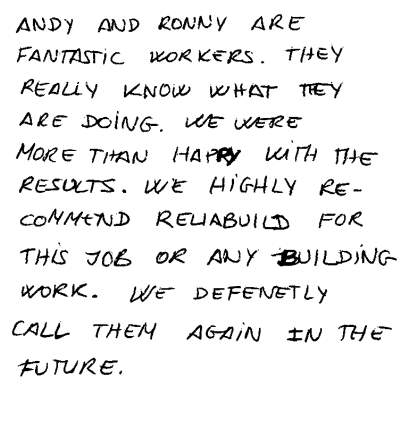 ANDY AND RONNY ARE
FANTASTIC WORKERS. THEY
REALLY KNOW WHAT THEY
ARE DOING. WE WERE
MORE THAN HAPPY WITH THE
RESULTS. WE HIGHLY RE-
COMMEND RELIABUILD FOR
THIS JOB OR ANY BUILDING
WORK. WE DEFENETLY
CALL THEM AGAIN IN THE
FUTURE.